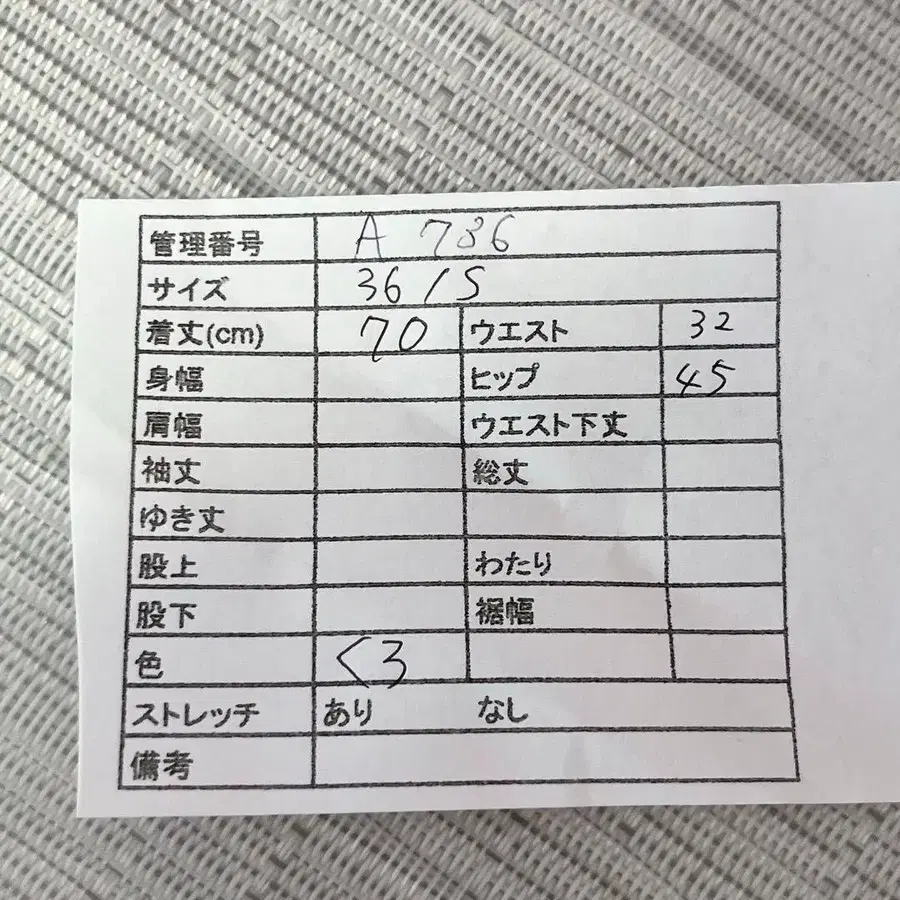 管理番号 A 736
サイズ 36/S
着丈(cm) 70 ウエスト 32
身幅 ヒップ 45
肩幅 ウエスト下丈
袖丈 総丈
ゆき丈
股上 わたり
股下 裾幅
色 くろ
ストレッチ あり なし
備考